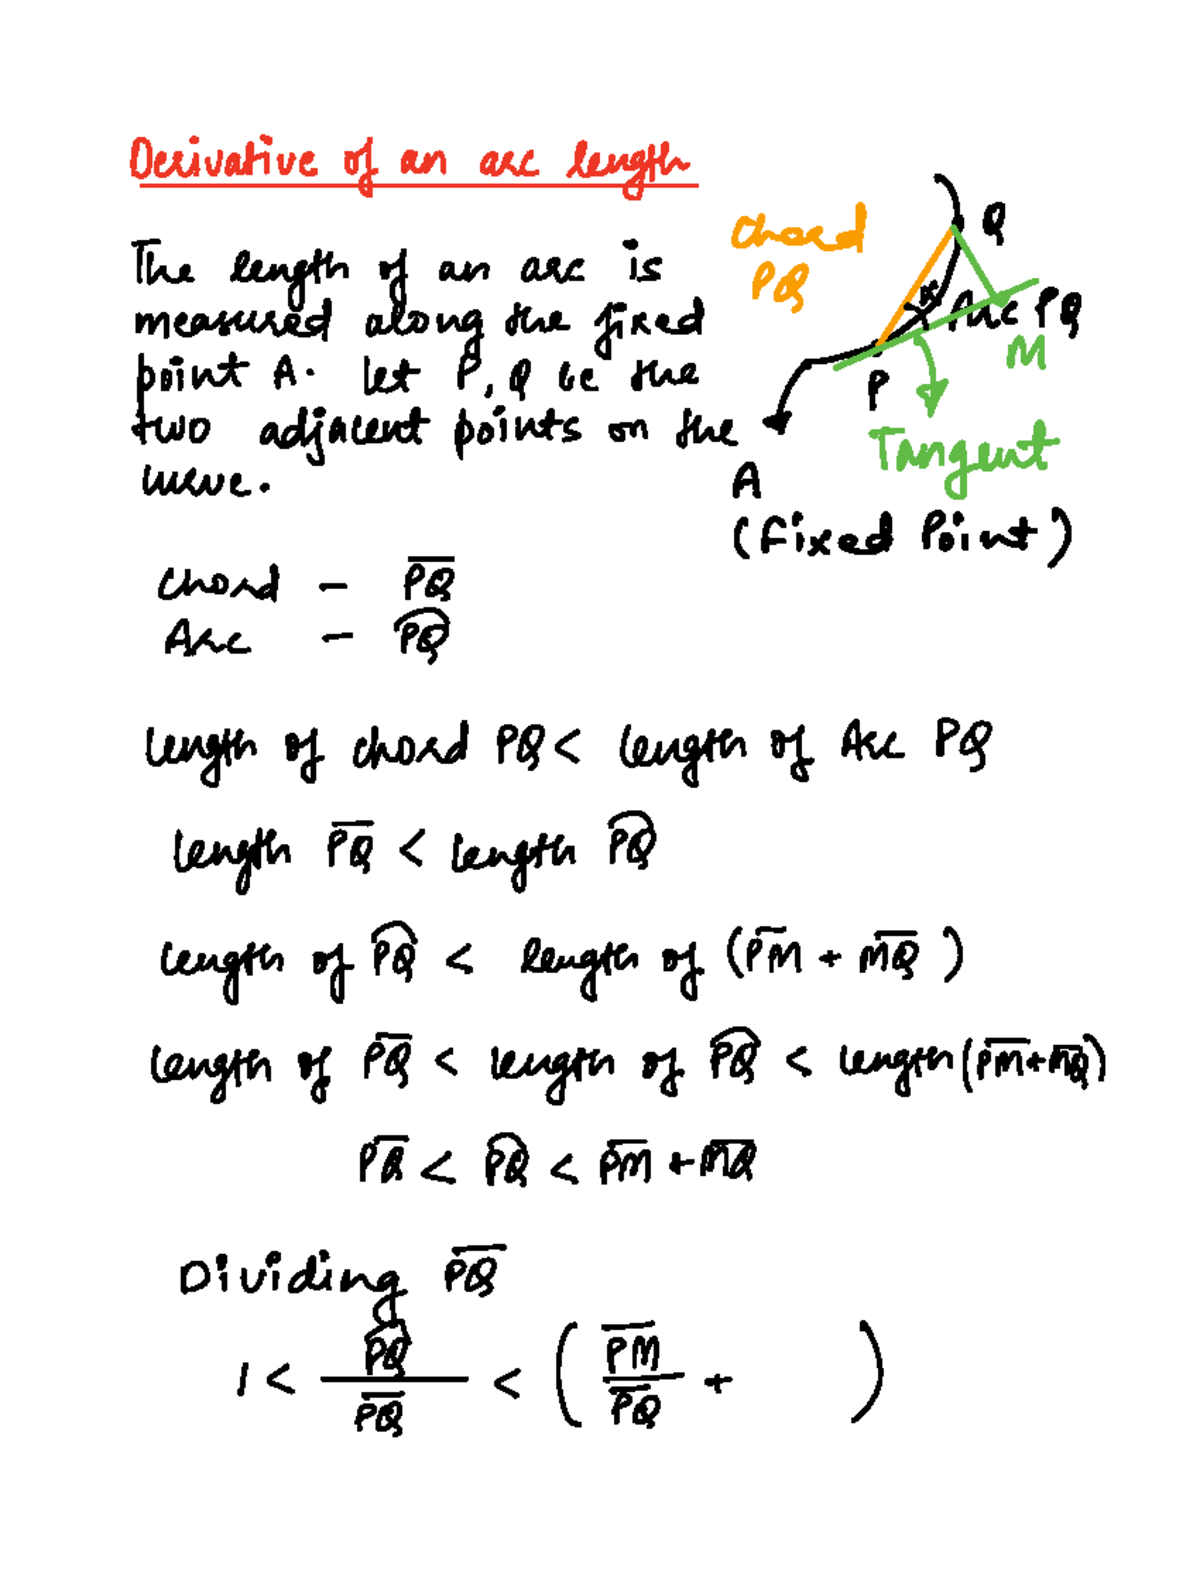 Derivative of an arc length
The length of an arc is
measured along the fixed
point A. Let P, Q be the
two adjacent points on the
curve.
Chord
PQ
Q
α
Arc PQ
M
P
Tangent
A
(Fixed Point)
Chord - P͞Q͞
Arc - P͡Q
Length of chord PQ < length of Arc PQ
Length P͞Q͞ < length P͡Q
Length of P͡Q < length of (P͞M͞ + M͞Q͞)
Length of P͞Q͞ < length of P͡Q < length (P͞M͞ + M͞Q͞)
P͞Q͞ < P͡Q < P͞M͞ + M͞Q͞
Dividing P͞Q͞
1 < P͡Q / P͞Q͞ < ( P͞M͞ / P͞Q͞ + )